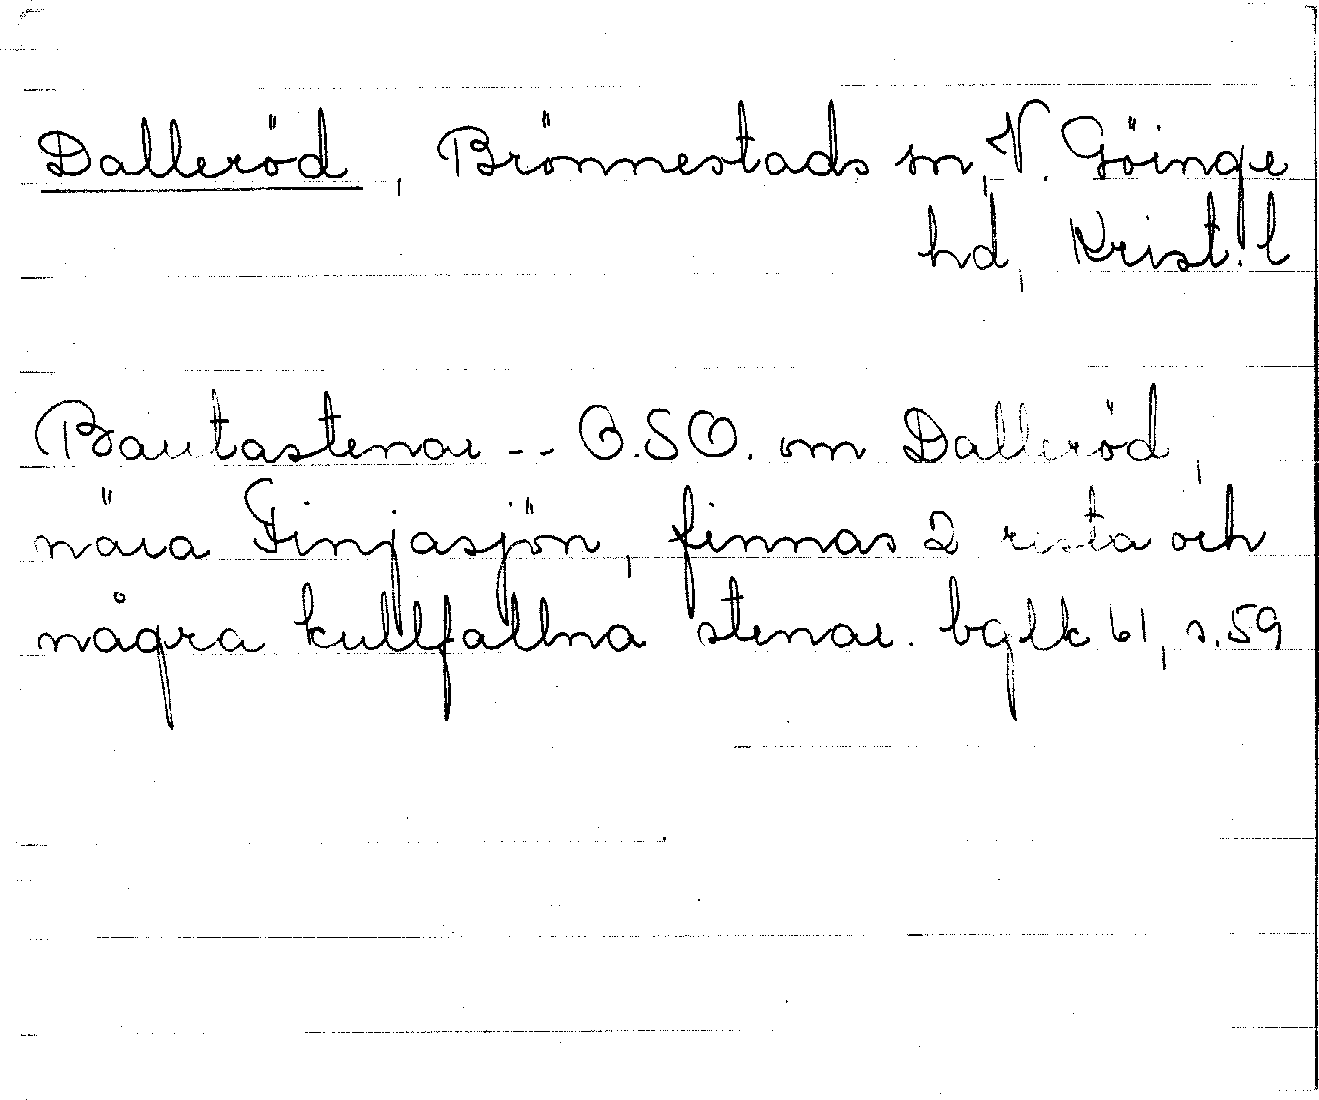 Dalleröd, Brönnestads sn, V. Göinge
hd, Krist. l
Bautastenar -- O.SO. om Dalleröd,
nära Finjasjön, finnas 2 resta och
några kullfallna stenar. bglk 61, s. 59